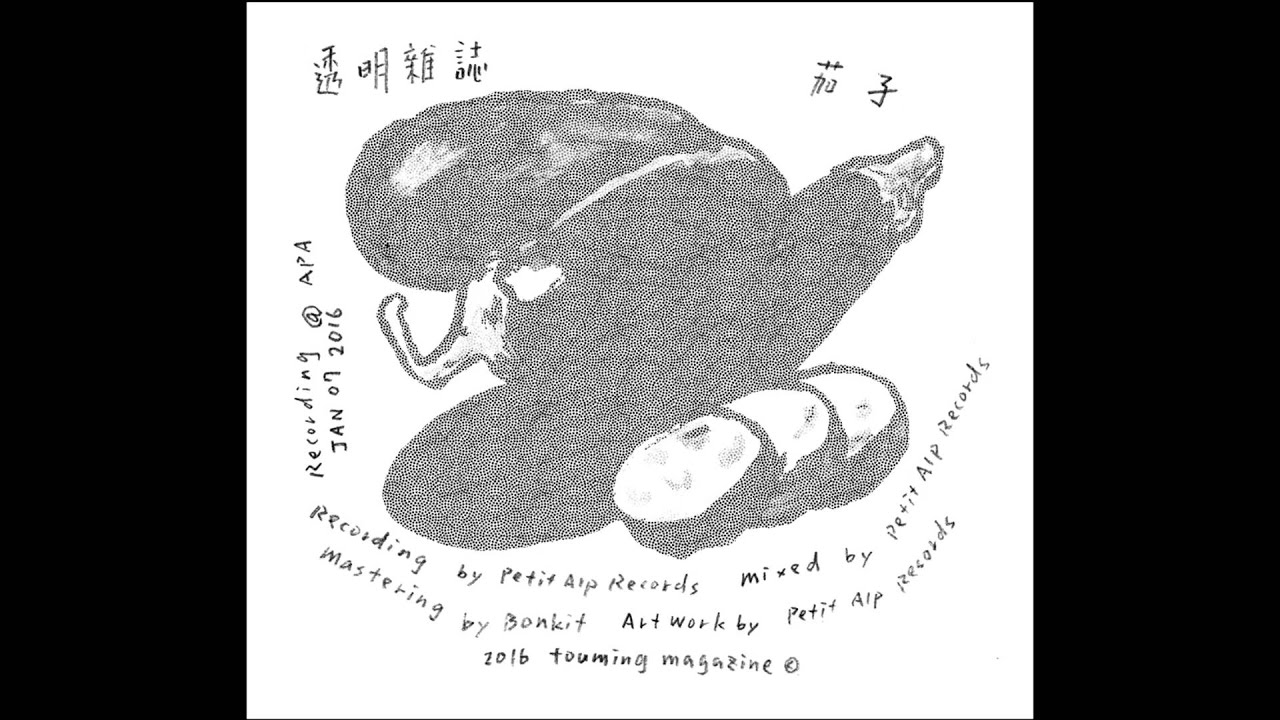 透明雜誌
茄子
Recording @ APA
JAN 07 2016
Recording by Petit Alp Records mixed by Petit Alp Records
Mastering by Bonkit Artwork by Petit Alp Records
2016 touming magazine ©